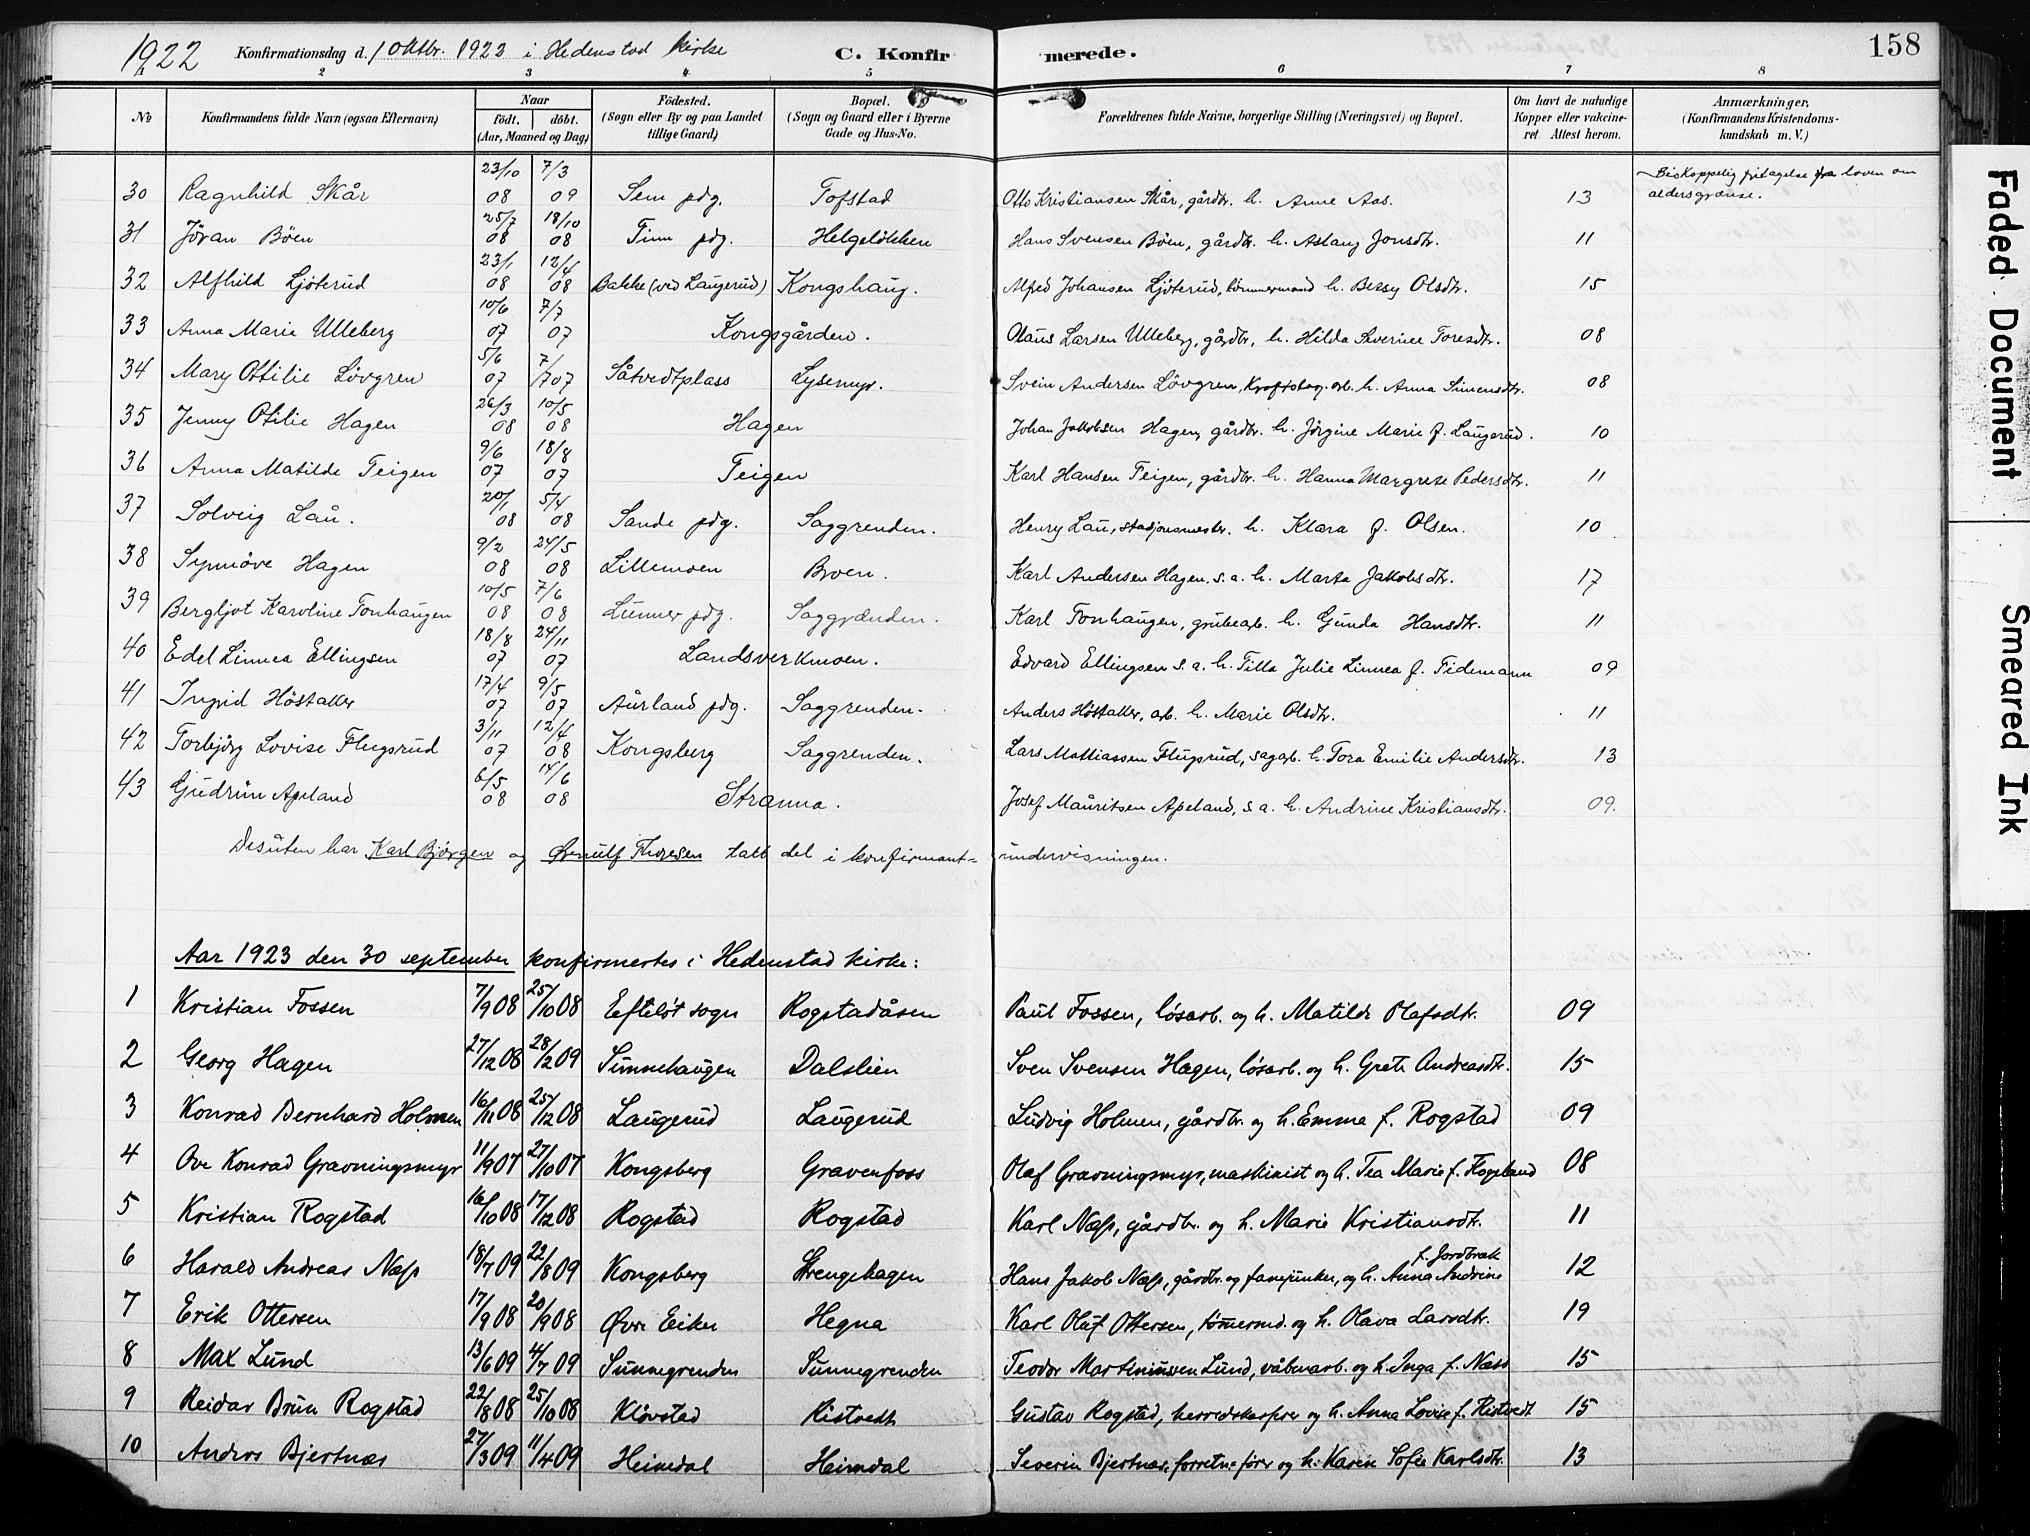 1922 Konfirmationsdag d. 1 oktbr. 1922 i Hedenstad kirke C. Konfirmerede. 158
2 3 4 5 6 7 8
No Konfirmandens fulde Navn (ogsaa Efternavn) Naar født. døbt. (Aar, Maaned og Dag) Fødested. (Sogn eller By og paa Landet tillige Gaard) Bopæl. (Sogn og Gaard eller i Byerne Gade og Hus-No. Forældrenes fulde Navne, borgerlige Stilling (Næringsvei) og Bopæl. Om havt de naturlige Kopper eller vakcineret. Attest herom. Anmærkninger. (Konfirmandens Kristendomskundskab m. V.)
30 Ragnhild Skår 23/10 08 7/3 09 Sem pdg. Tofstad Otto Kristiansen Skår, gårdbr. h. Anne Aas. 13 Biskoppelig fritagelse fra loven om aldersgrænse.
31 Jöran Böen 25/7 08 18/10 08 Tinn pdg. Helgelökken Hans Svensen Böen, gårdbr. h. Aslaug Jonsdtr. 11
32 Alfhild Ljöterud 23/1 08 12/4 08 Bakke (ved Laugerud) Kongshaug. Alfred Johansen Ljöterud, tömmermand h. Bessy Olsdtr. 15
33 Anna Marie Ulleberg 10/6 07 7/7 07 Kongsgården. Olaus Larsen Ulleberg, gårdbr, h. Hilda Severine Toresdtr. 08
34 Mary Ottilie Lövgren 5/6 07 7/7 07 Såtvedtplass Lysemyr. Svein Andersen Lövgren, arb. h. Anna Simensdtr. 08
35 Jenny Otilie Hagen 26/3 08 10/5 08 Hagen Johan Jakobsen Hagen, gårdbr. h. Jörgine Marie f. Laugerud. 10
36 Anna Matilde Teigen 9/6 07 18/8 07 Teigen Karl Hansen Teigen, gårdbr. h. Hanna Margrete Pedersdtr. 11
37 Solveig Lau. 20/1 08 5/4 08 Sande pdg. Saggrenden. Henry Lau, stasjonsmester. h. Klara f. Olsen. 10
38 Synnöve Hagen 9/2 08 24/5 08 Lillemoen Broen. Karl Andersen Hagen. s.a. h. Marta Jakobsdtr. 17
39 Bergljot Karoline Tonhaugen 10/5 08 7/6 08 Lunner pdg. Saggrænden. Karl Tonhaugen, grubearb. h. Gunda Hansdtr. 11
40 Edel Linnea Ellingsen 18/8 07 24/11 07 Landsverkmoen. Edvard Ellingsen s.a. h. Tilla Julie Linnea f. Tidemann 09
41 Ingrid Höstakker 17/4 07 9/5 07 Aurland pdg. Saggrenden. Anders Höstakker, arb. h. Marie Olsdtr. 11
42 Torbjörg Lovise Flugsrud 3/11 07 12/4 08 Kongsberg Saggrenden. Lars Mattiassen Flugsrud, sagarb. h. Tora Emilie Andersdtr. 13
43 Gudrun Apeland 6/5 08 14/6 08 Stranna. Josef Mauritsen Apeland, s.a. h. Andrine Kristiansdtr. 09.
Desuten har Karl Bjørgen og Ørnulf Thoresen tatt del i konfirmant-undervisningen.
Aar 1923 den 30 september konfirmertes i Hedenstad kirke:
1 Kristian Fossen 7/9 08 25/10 08 Efteløt sogn Rogstadåsen Paul Fossen, løsarb. og h. Matilde Olafsdtr. 09
2 Georg Hagen 27/12 08 28/2 09 Sunnehaugen Dalslien Sven Svensen Hagen, løsarb. og h. Grete Andreasdtr. 15
3 Konrad Bernhard Holmen 16/11 08 25/12 08 Laugerud Laugerud Ludvig Holmen, gårdbr. og h. Emma f. Rogstad 09
4 Ove Konrad Gravningsmyr 11/9 07 27/10 07 Kongsberg Gravenfoss Olaf Gravningsmyr, maskinist og h. Tea Marie f. Hogeland 08
5 Kristian Rogstad 16/10 08 17/12 08 Rogstad Rogstad Karl Næss, gårdbr. og h. Marie Kristiansdtr. 11
6 Harald Andreas Næss 18/7 09 22/8 09 Kongsberg Strengehagen Hans Jakob Næss, gårdbr. og fanejunker, og h. Anna Andrine f. Jordbræk 12
7 Erik Ottersen 17/9 08 20/9 08 Øvre Eiker Hegna Karl Oluf Ottersen, tømermd. og h. Olava Larsdtr. 19
8 Max Lund 13/6 09 4/7 09 Sunnegrenden Sunnegrenden Teodor Martiniussen Lund, våbenarb. og h. Inga f. Næss 15
9 Reidar Brun Rogstad 22/8 08 25/10 08 Kløvstad Kistvedt Gustav Rogstad, herredskasserer og h. Anna Lovise f. Kistvedt 15
10 Anders Bjertnæs 27/3 09 11/4 09 Heimdal Heimdal Severin Bjertnæs, forretn.fører og h. Karen Sofie Karlsdtr. 13
Faded Document
Smeared Ink